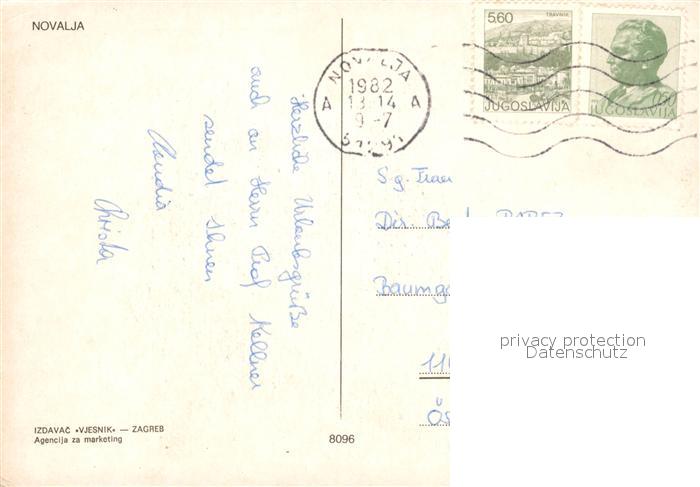 NOVALJA
Herzliche Urlaubsgrüße
auch an Herrn Prof Kellner
sendet Ihnen
Claudia
Christa
IZDAVAČ «VJESNIK» — ZAGREB
Agencija za marketing
8096
NOVALJA
1982
13-14
9-7
A A
5.60
TRAVNIK
JUGOSLAVIJA
JUGOSLAVIJA
S.g.
Dir.
Baumg
11
Ös
privacy protection
Datenschutz